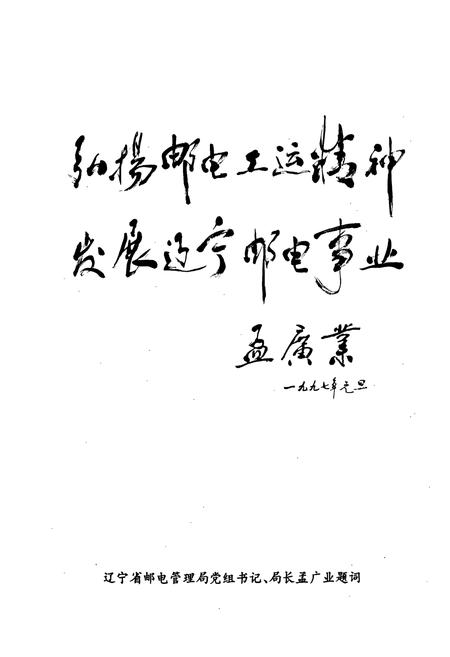 弘揚邮电工运精神
发展辽宁邮电事业
孟廣業
一九九七年元旦
辽宁省邮电管理局党组书记、局长孟广业题词